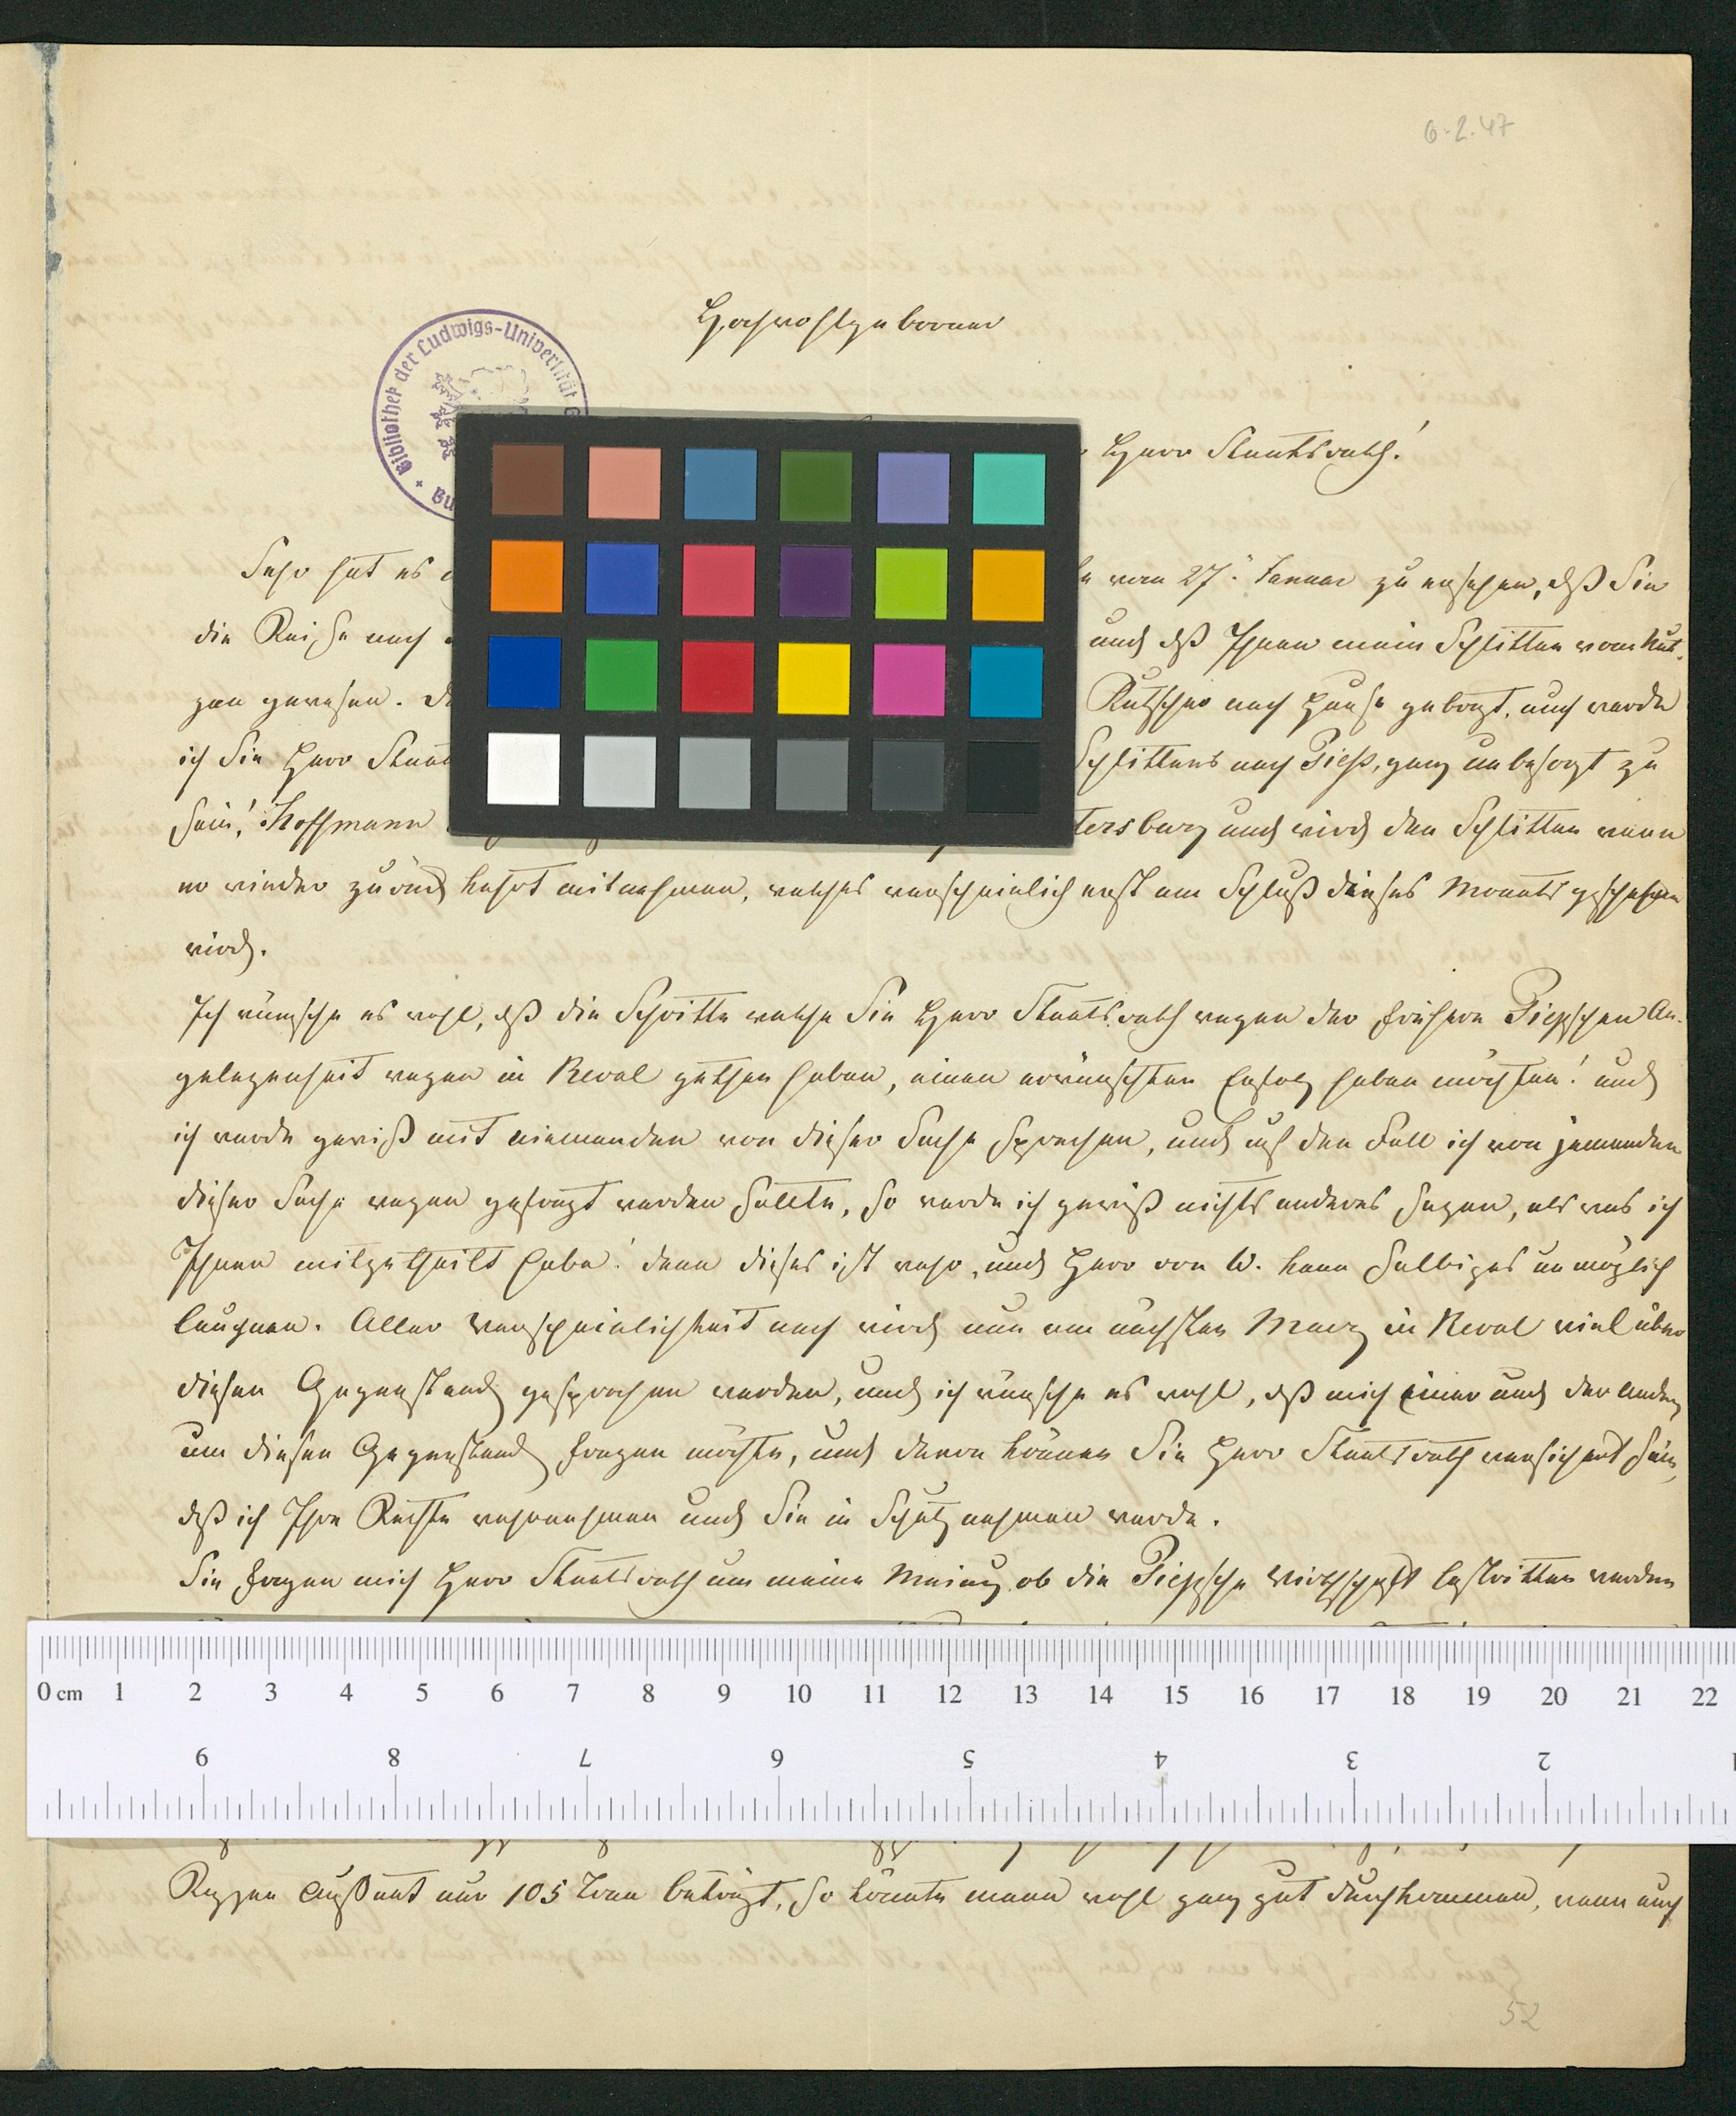 6.2.47
Hochwohlgeborner
Bibliothek der Ludwigs-Universität
Herr Staatsrath!
Sehr hat es
vom 27. Januar zu ersehen, dß Sie
die Reise nach
und dß Ihnen mein Schlitten vom Nut-
zen gewesen.
Kutscher nach Hause gebragt, auch werde
ich Sie Herr Staat
Schlittens nach Pieß, ganz unbesorgt zu
sein! Hoffmann
tersburg und wird den Schlitten wenn
er wieder zurück kehrt mitnehmen, welches warscheinlich erst am Schluß dieses Monats geschehen
wird.
Ich wünsche es wohl, dß die Schritte welche Sie Herr Staatsrath wegen der frühern Piepschen An-
gelegenheit wegen in Reval gethan haben, einen erwünschten Erfolg haben möchten! und
ich werde gewiß mit niemanden von dieser Sache sprechen, und auf den Fall ich von jemanden
dieser Sache wegen gefragt werden sollte, so werde ich gewiß nichts anderes sagen, als was ich
Ihnen mitgetheilt habe! denn dieses ist wahr, und Herr von W. kann selbiges unmöglich
leugnen. Aller Warscheinlichkeit nach wird nun am nächsten Maerz in Reval viel über
diesen Gegenstand gesprochen werden, und ich wünsche es wohl, dß mich einer und der andere
um diesen Gegenstand fragen möchte, und davon können Sie Herr Staatsrath versichert sein,
dß ich Ihre Rechte wahrnehmen und Sie in Schutz nehmen werde.
Sie fragen mich Herr Staatsrath um meine Meinung ob die Piepsche Wirthschaft bestritten werden
0 cm 1 2 3 4 5 6 7 8 9 10 11 12 13 14 15 16 17 18 19 20 21 22
9 8 7 6 5 4 3 2
Roggen Aussaat nur 105 Lven beträgt, so könnte mann wohl ganz gut durchkommen, wenn auch
52